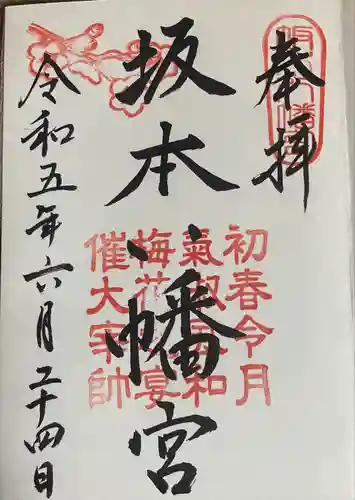 奉拝
坂本八幡宮
坂本八幡宮
初春令月
氣淑風和
梅花の宴
催大宰帥
令和五年六月二十四日